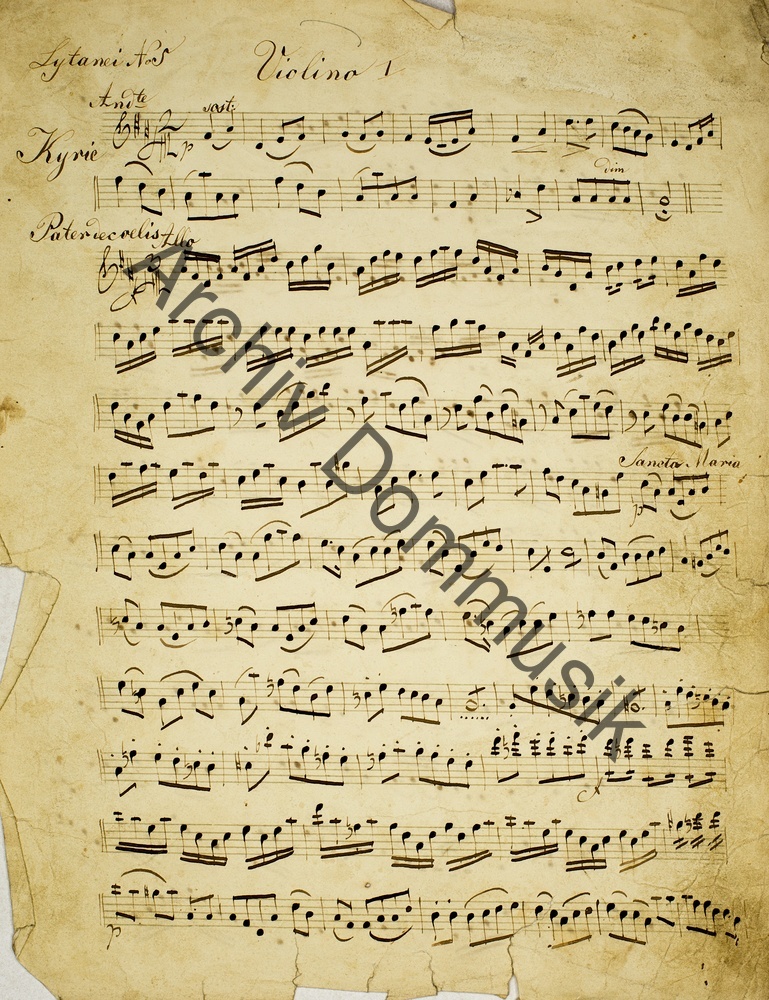 Lytanei No 5
Violino 1
Andte
sost:
Kyrie
p
dim
Pater de coelis Allo
Sancta Maria
p
p
Archiv Dommusik